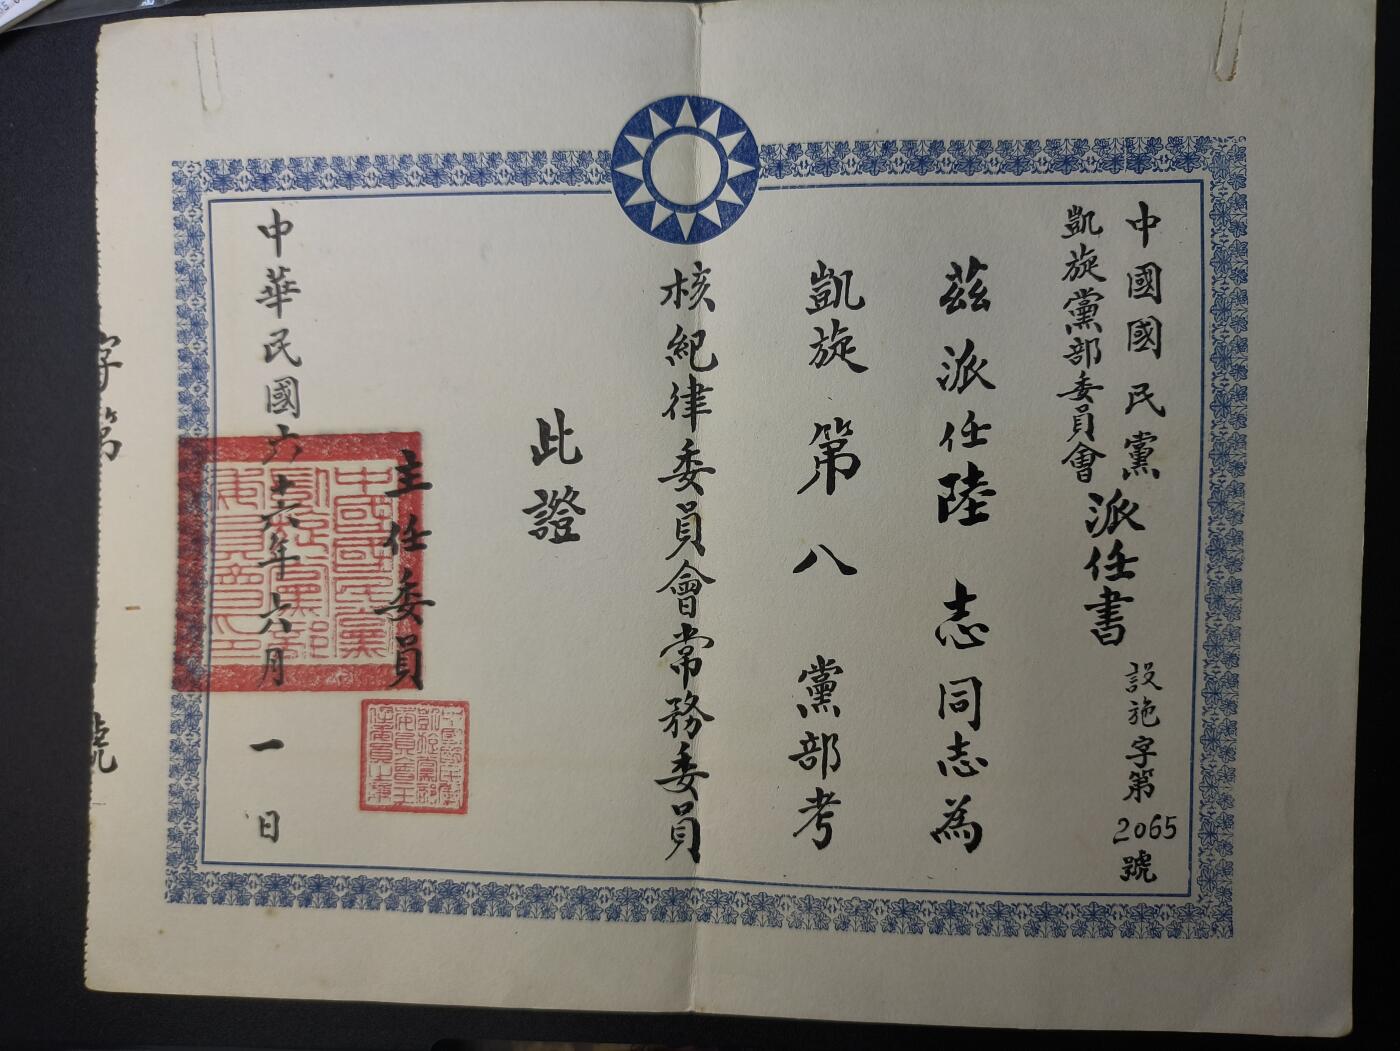 中國國民黨
凱旋黨部委員會
派任書
設施字第2065號
茲派任陸 志同志為
凱旋第八 黨部考
核紀律委員會常務委員
此證
主任委員
中華民國六十六年六月一日
中國國民黨
凱旋黨部
委員會印
字第 號